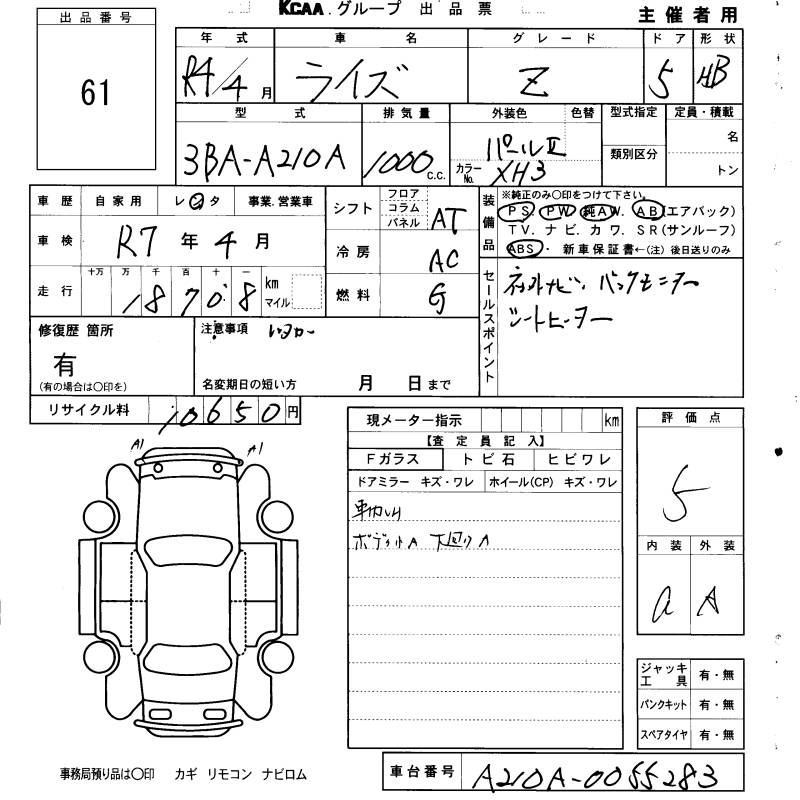 KCAA.グループ 出品票
主催者用
出品番号
61
年式 車名 グレード ドア 形状
R4/4月 ライズ Z 5 HB
型式 排気量 外装色 色替 型式指定 定員・積載
3BA-A210A 1000c.c. パールII 名
カラーNo. XH3 類別区分 トン
車歴 自家用 レンタ 事業.営業車
車検 R7年4月
走行 十万 万 千 百 十 一 km マイル
18708
シフト フロア コラム パネル AT
冷房 AC
燃料 G
装備品
※純正のみ〇印をつけて下さい。
PS. PW. 純AW. AB(エアバック)
TV. ナビ. カワ. SR(サンルーフ)
ABS・ 新車保証書←(注) 後日送りのみ
セールスポイント
社外ナビ、バックモニター
シートヒーター
修復歴 箇所
有
(有の場合は〇印を)
注意事項 レンタカー
名変期日の短い方 月 日まで
リサイクル料 10650円
現メーター指示 km
【査定員記入】
Fガラス トビ石 ヒビワレ
ドアミラー キズ・ワレ ホイール(CP) キズ・ワレ
ボディ下A 下廻りA
A1 A1
評価点
5
内装 外装
a A
ジャッキ工具 有・無
パンクキット 有・無
スペアタイヤ 有・無
事務局預り品は〇印 カギ リモコン ナビロム
車台番号 A210A-0055283